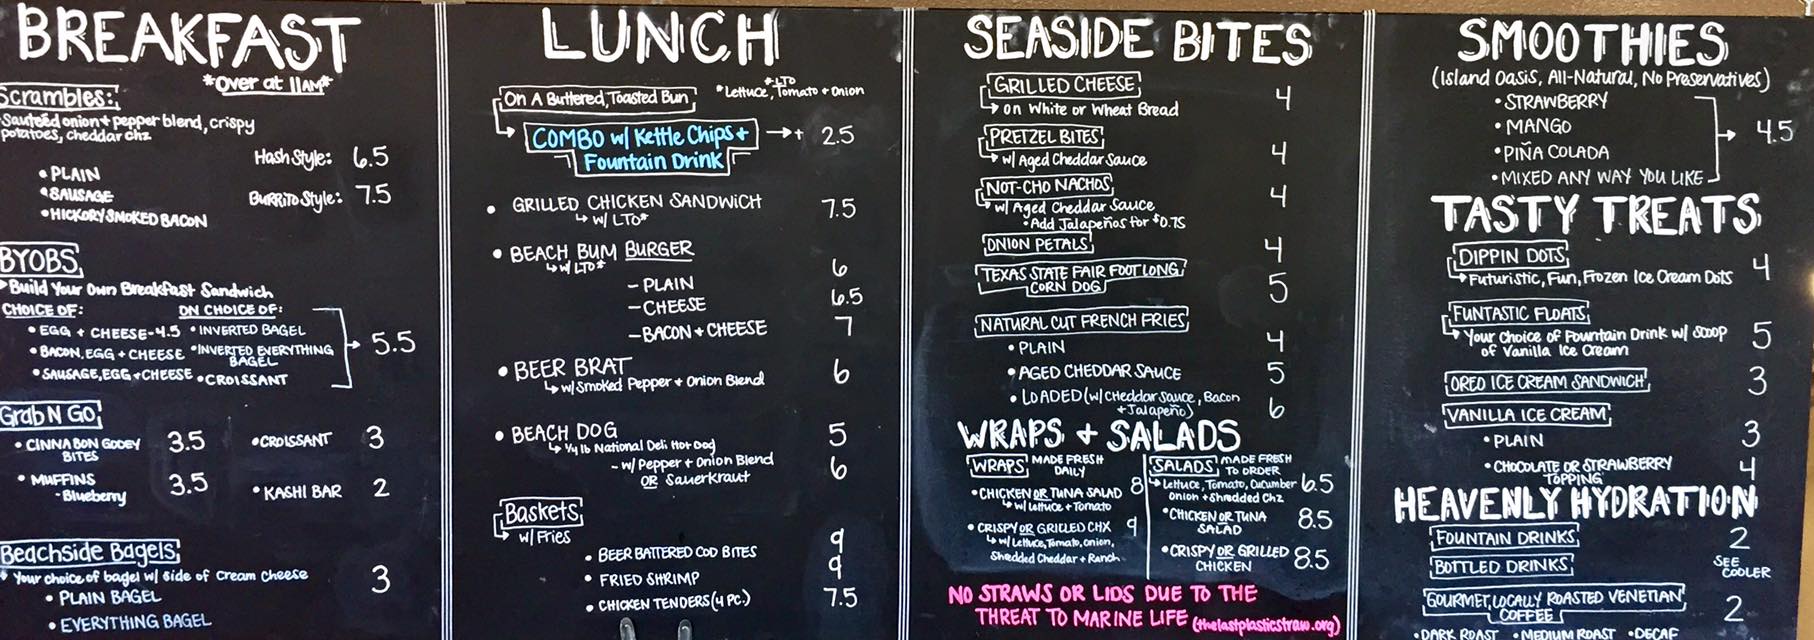 BREAKFAST
*Over at 11AM*
Scrambles:
Sautéed onion + pepper blend, crispy
potatoes, cheddar chz
Hash Style: 6.5
• PLAIN
• SAUSAGE
Burrito Style: 7.5
• HICKORY SMOKED BACON
BYOBS
Build Your Own Breakfast Sandwich
CHOICE OF: ON CHOICE OF:
• EGG + CHEESE - 4.5 • INVERTED BAGEL
• BACON, EGG + CHEESE • INVERTED EVERYTHING
BAGEL
• SAUSAGE, EGG + CHEESE • CROISSANT
5.5
Grab N Go
• CINNABON GOOEY
BITES 3.5
• CROISSANT 3
• MUFFINS
- Blueberry 3.5
• KASHI BAR 2
Beachside Bagels
Your choice of bagel w/ side of Cream Cheese 3
• PLAIN BAGEL
• EVERYTHING BAGEL
LUNCH
On A Buttered, Toasted Bun
*LTO
*Lettuce, Tomato + Onion
COMBO w/ Kettle Chips +
Fountain Drink → + 2.5
• GRILLED CHICKEN SANDWICH 7.5
w/ LTO*
• BEACH BUM BURGER
w/ LTO* 6
- PLAIN
- CHEESE 6.5
- BACON + CHEESE 7
• BEER BRAT 6
w/ Smoked Pepper + Onion Blend
• BEACH DOG 5
1/4 lb National Deli Hot Dog
- w/ Pepper + Onion Blend 6
OR Sauerkraut
Baskets
w/ Fries
• BEER BATTERED COD BITES 9
• FRIED SHRIMP 9
• CHICKEN TENDERS (4 PC.) 7.5
SEASIDE BITES
GRILLED CHEESE 4
on White or Wheat Bread
PRETZEL BITES 4
w/ Aged Cheddar Sauce
NOT-CHO NACHOS 4
w/ Aged Cheddar Sauce
• Add Jalapeños for $0.75
ONION PETALS 4
TEXAS STATE FAIR FOOTLONG
CORN DOG 5
NATURAL CUT FRENCH FRIES
• PLAIN 4
• AGED CHEDDAR SAUCE 5
• LOADED (w/ Cheddar Sauce, Bacon
+ Jalapeño) 6
WRAPS + SALADS
WRAPS MADE FRESH
DAILY
• CHICKEN OR TUNA SALAD 8
w/ Lettuce + Tomato
• CRISPY OR GRILLED CHX 9
w/ Lettuce, Tomato, Onion,
Shredded Cheddar + Ranch
SALADS MADE FRESH
TO ORDER
Lettuce, Tomato, Cucumber 6.5
Onion + Shredded Chz
• CHICKEN OR TUNA
SALAD 8.5
• CRISPY OR GRILLED
CHICKEN 8.5
NO STRAWS OR LIDS DUE TO THE
THREAT TO MARINE LIFE (thelastplasticstraw.org)
SMOOTHIES
(Island Oasis, All-Natural, No Preservatives)
• STRAWBERRY
• MANGO
• PIÑA COLADA
• MIXED ANY WAY YOU LIKE
4.5
TASTY TREATS
DIPPIN DOTS 4
Futuristic, Fun, Frozen Ice Cream Dots
FUNTASTIC FLOATS
Your Choice of Fountain Drink w/ Scoop
of Vanilla Ice Cream 5
OREO ICE CREAM SANDWICH 3
VANILLA ICE CREAM
• PLAIN 3
• CHOCOLATE OR STRAWBERRY
TOPPING 4
HEAVENLY HYDRATION
FOUNTAIN DRINKS 2
BOTTLED DRINKS SEE
COOLER
GOURMET, LOCALLY ROASTED VENETIAN
COFFEE 2
• DARK ROAST • MEDIUM ROAST • DECAF